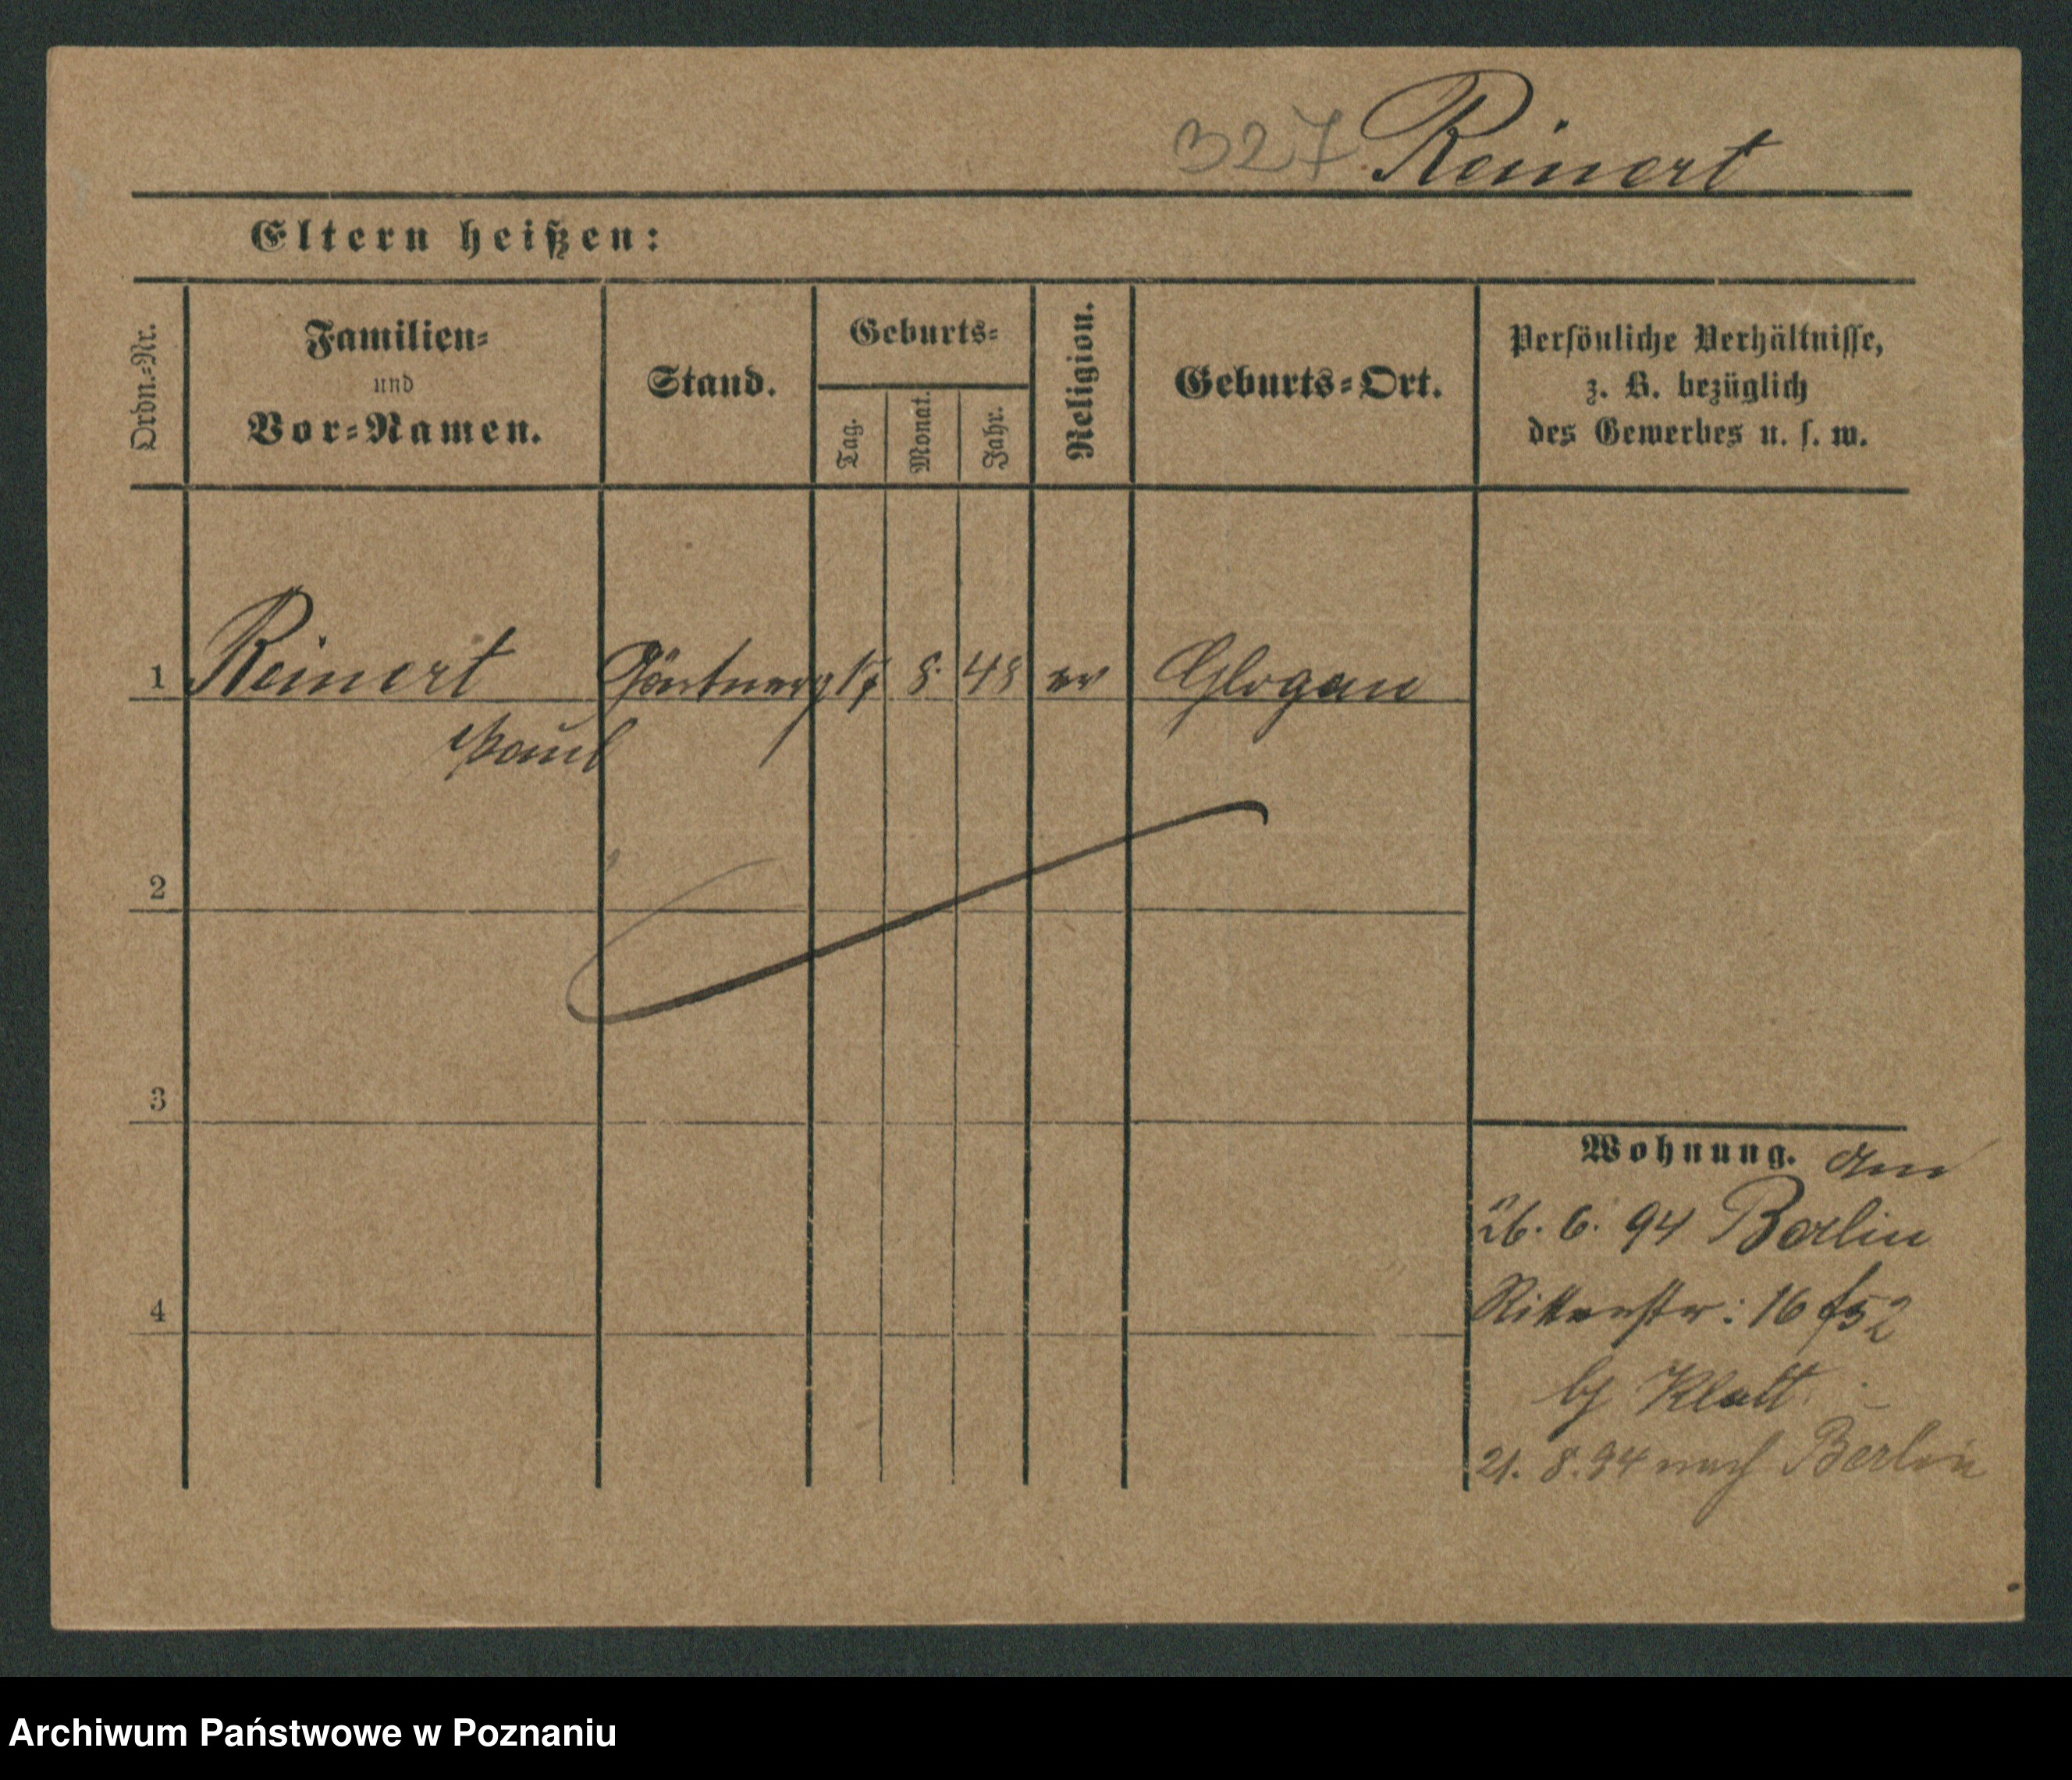 327 Reinert
Eltern heißen:
Ordn.=Nr.
Familien=
und
Vor=Namen.
Stand.
Geburts=
Tag.
Monat.
Jahr.
Religion.
Geburts=Ort.
Persönliche Verhältnisse,
z. B. bezüglich
des Gewerbes u. s. w.
1 Reinert 8. 48 ev Glogau
Paul
2
3
4
Wohnung. am
26. 6. 94 Berlin
Ritterstr: 16
bj Klatt
21. 8. 94 nach Berlin
Archiwum Państwowe w Poznaniu